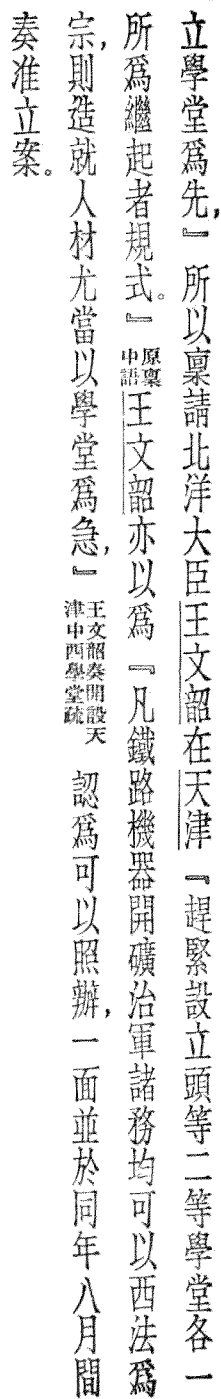 立學堂爲先,』所以稟請北洋大臣王文韶在天津『趕緊設立頭等二等學堂各一
所爲繼起者規式。』原稟中語王文韶亦以爲『凡鐵路機器開礦治軍諸務均可以西法爲
宗,則造就人材尤當以學堂爲急,』王文韶奏開設天津中西學堂疏 認爲可以照辦,一面並於同年八月間
奏准立案。